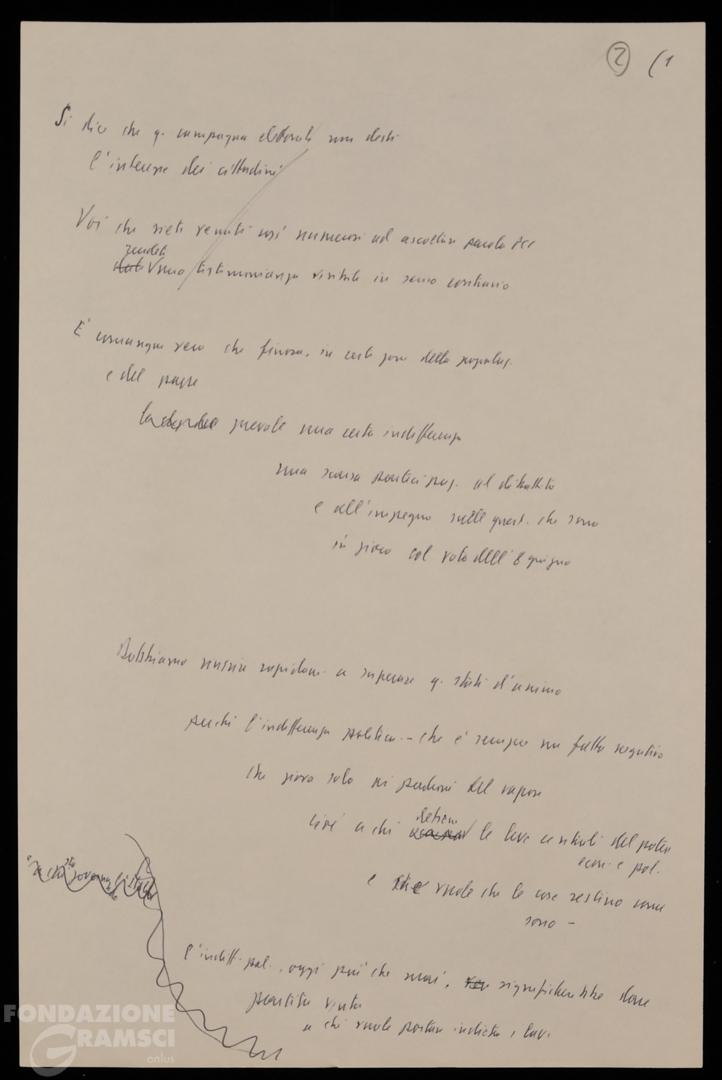 2 (1
Si dice che q. campagna elettorale non desti
l'interesse dei cittadini
Voi che siete venuti così numerosi ad ascoltare
rendete
una testimonianza visibile in senso contrario
È comunque vero che finora, in certe zone della popolaz.
e del paese
prevale una certa indifferenza
una scarsa partecipaz. al dibattito
e all'impegno sulle quest. che sono
in gioco col voto dell'8 giugno
Dobbiamo riuscire rapidam. a superare q. stati d'animo
perché l'indifferenza politica – che è sempre un fatto negativo
che giova solo ai padroni del vapore
cioè a chi detiene le leve centrali del potere
econ. e pol.
e vuole che le cose restino come
sono –
l'indiff. pol., oggi più che mai, significherebbe dare
partita vinta
a chi vuole portare indietro i lav.
FONDAZIONE
GRAMSCI
onlus